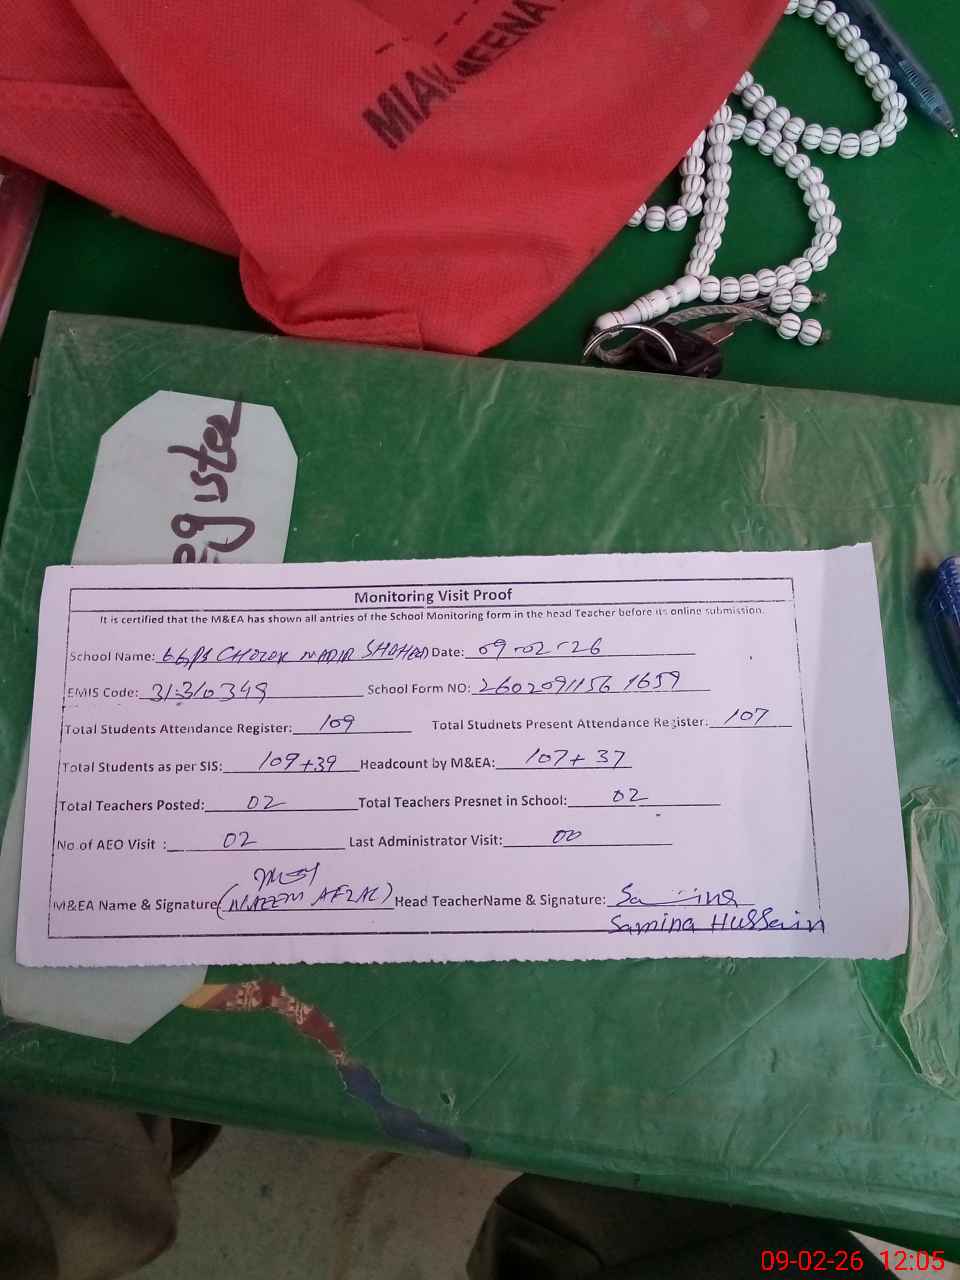 MIAK
Register
Monitoring Visit Proof
It is certified that the M&EA has shown all antries of the School Monitoring form in the head Teacher before its online submission.
School Name: GGPS CHOZOK NADIR SHAHEED Date: 09-02-26
EMIS Code: 31310349 School Form NO: 26020911561659
Total Students Attendance Register: 109 Total Studnets Present Attendance Register: 107
Total Students as per SIS: 109+39 Headcount by M&EA: 107+37
Total Teachers Posted: 02 Total Teachers Presnet in School: 02
No of AEO Visit : 02 Last Administrator Visit: 00
M&EA Name & Signature (NAEEM AFZAL) Head TeacherName & Signature:
Samina Hussain
09-02-26 12:05